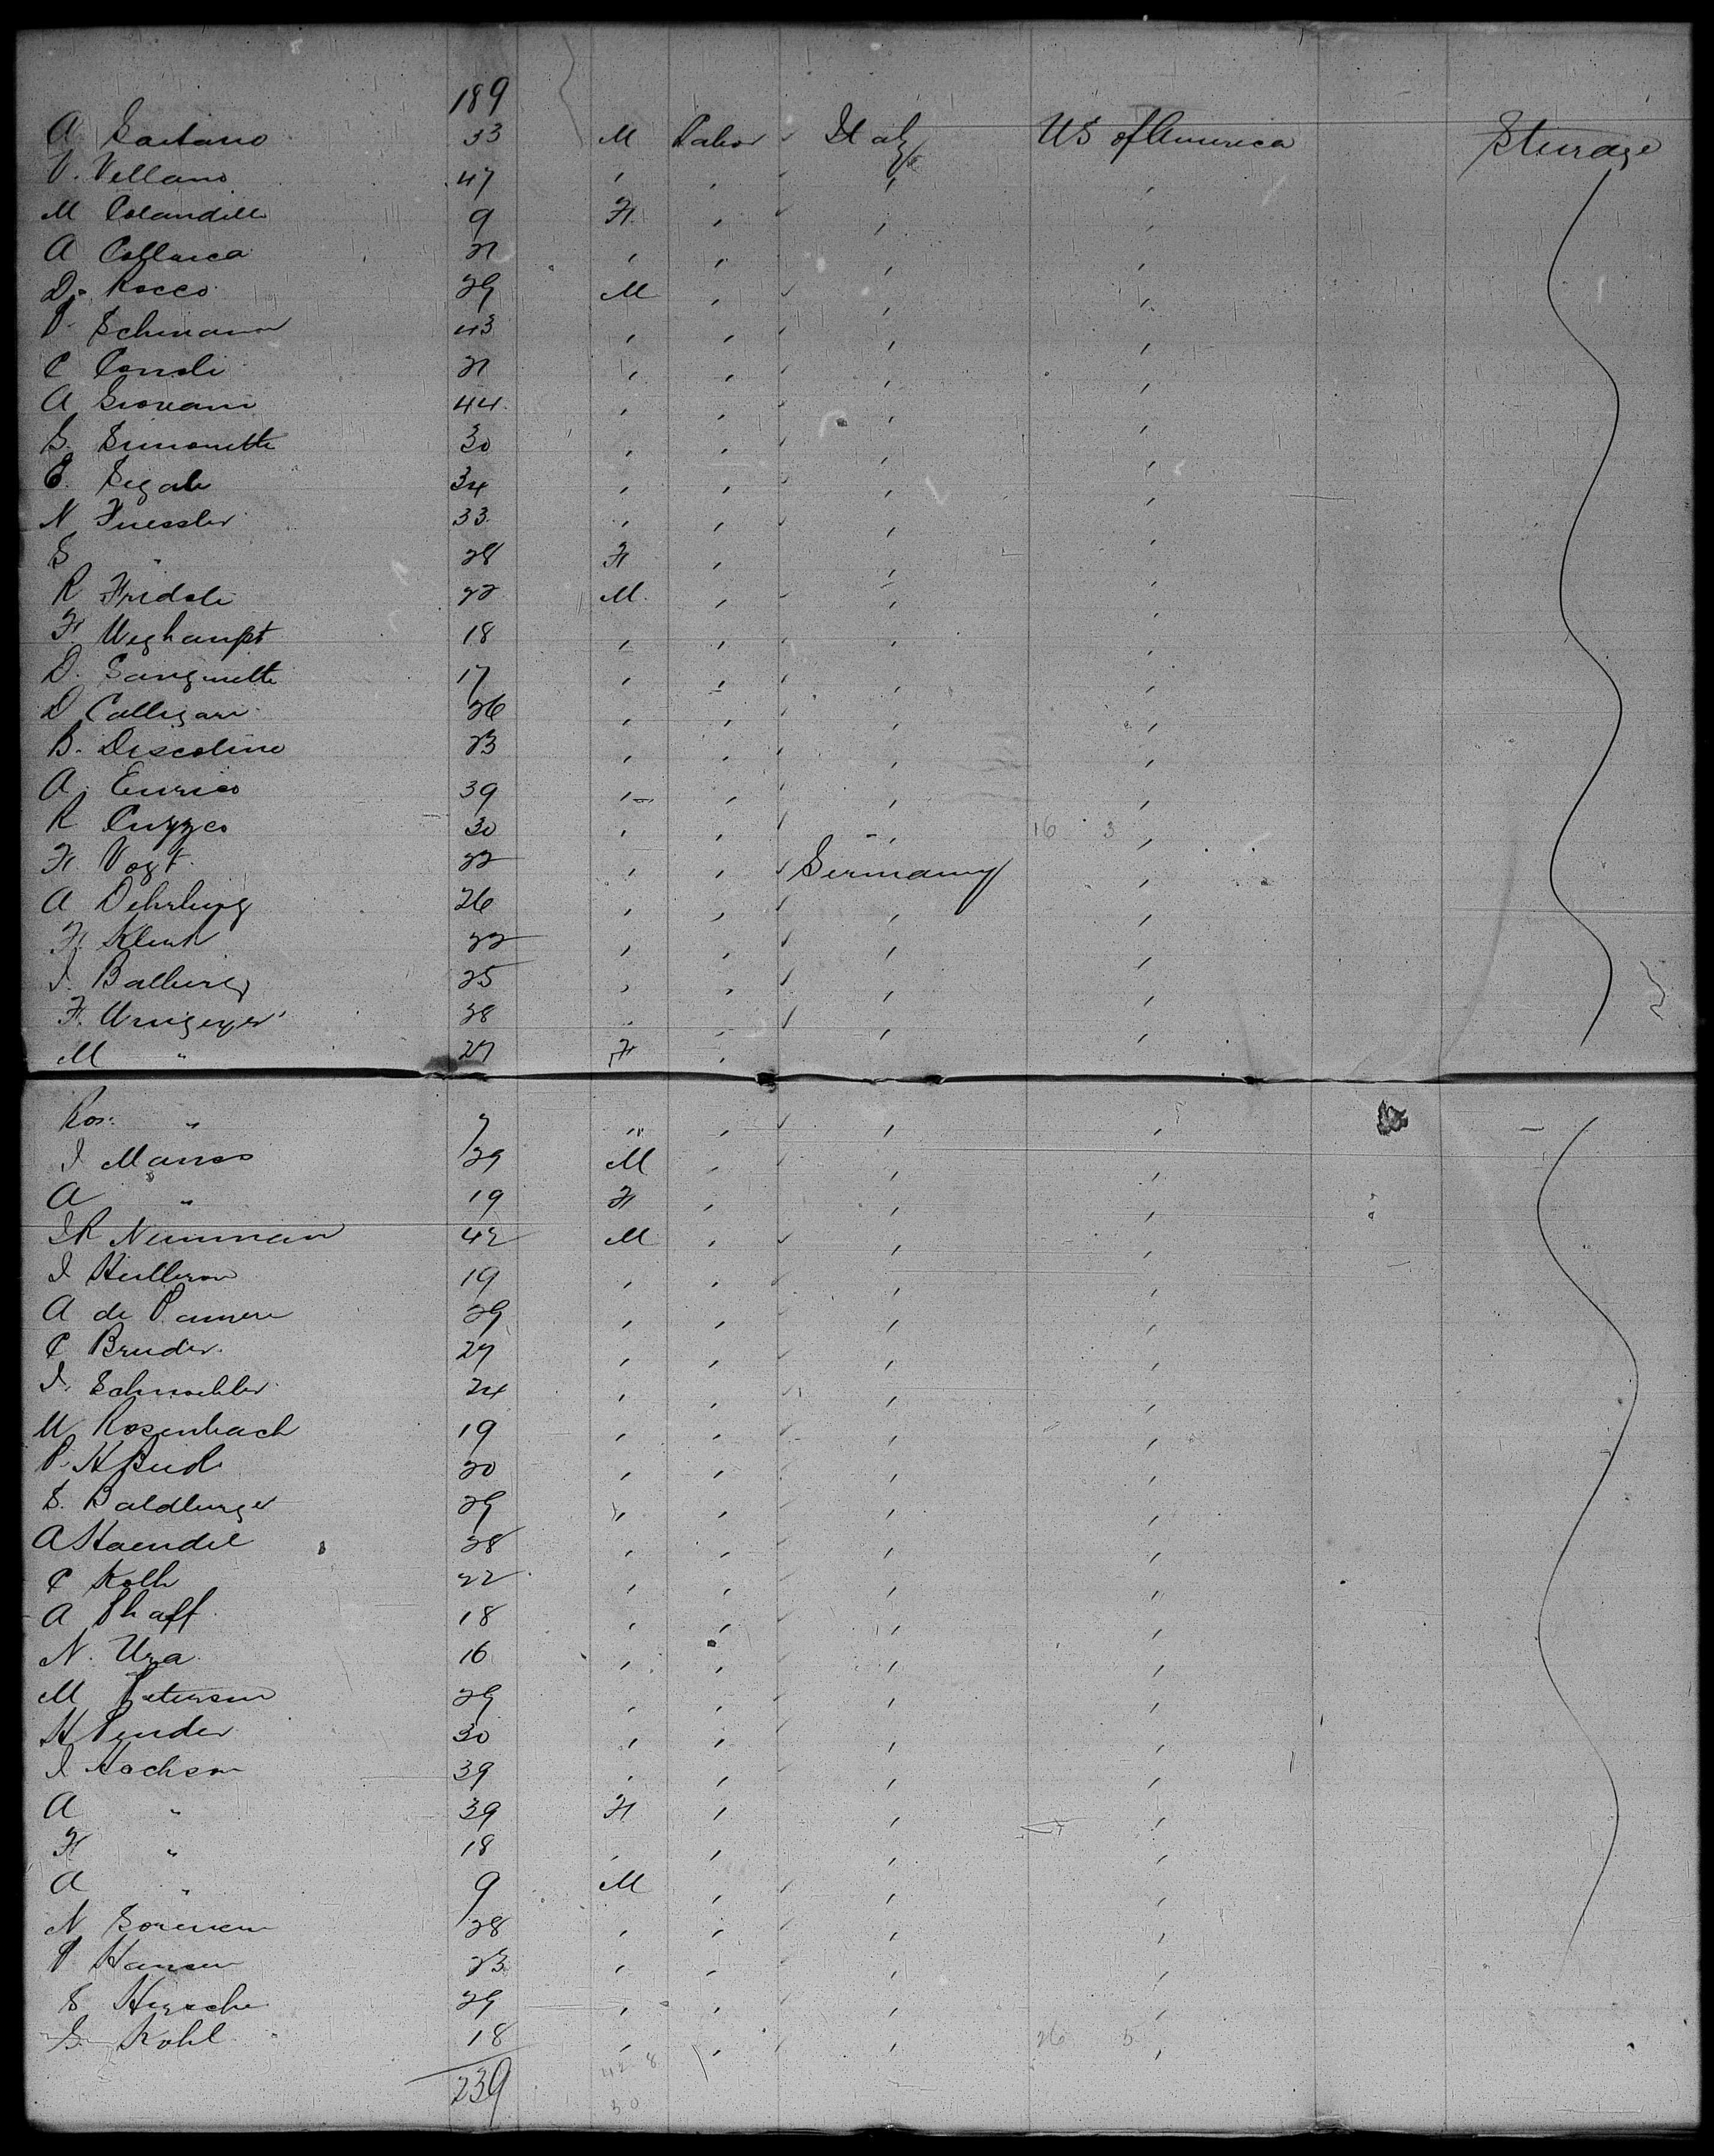 189
A Gaetano 33 M Labor ✓ Italy US of America Steerage
V. Vellano 47 " " " "
M Colandille 9 F. " ✓ " "
A 21 " " " "
D. Rocco 29 M " ✓ " "
P. Schinano 43 " " ✓ " "
C Consli 21 " " ✓ " "
A Giovani 44 " " ✓ " "
G. Simonette 30 " " ✓ " "
E. Segale 34 " " ✓ " "
N Fuessler 33 " " ✓ " "
S " 28 F " " "
R Fridoli 22 M. " ✓ " "
F. Weghaupt 18 " " ✓ " "
D. Sanginette 17 " " ✓ " "
D Calligari 26 " " ✓ " "
B. Discoline 23 " " ✓ " "
A. Enrico 39 " " ✓ " "
R Cuzzco 30 " " ✓ " 16 3 "
F. Vogt 22 " " ✓ Germany "
A Dehrling 26 " " ✓ " "
F. Klenk 22 " " ✓ " "
J. Balberg 25 " " ✓ " "
F. 28 " " ✓ " "
M " 27 F "
Ros. " 7 " " ✓ " "
J Manss 29 M " ✓ " "
A " 19 F " " "
J R Neumman 42 M " ✓ " "
J 19 " " ✓ " "
A de 29 " " ✓ " "
C Bruder. 27 " " ✓ " "
J. Schnaebler 24 " " ✓ " "
M Rosenbach 19 " " ✓ " "
P. 20 " " ✓ " "
S. Baldburger 29 " " ✓ " "
A Haendel 28 " " ✓ " "
C Kolb 22 " " ✓ " "
A Phaff 18 " " ✓ " "
N. Ura 16 " " ✓ " "
M Petersen 29 " " ✓ " "
H Pender 30 " " ✓ " "
J Hochson 39 " " ✓ " "
A " 39 F " " "
F " 18 " " " "
A " 9 M " ✓ " "
N Sorensen 28 " " ✓ " "
P Hansen 23 " " ✓ " "
S Hirsche 29 " " ✓ " "
G. Kohl 18 " " ✓ " 26 5 "
239 42 8
50